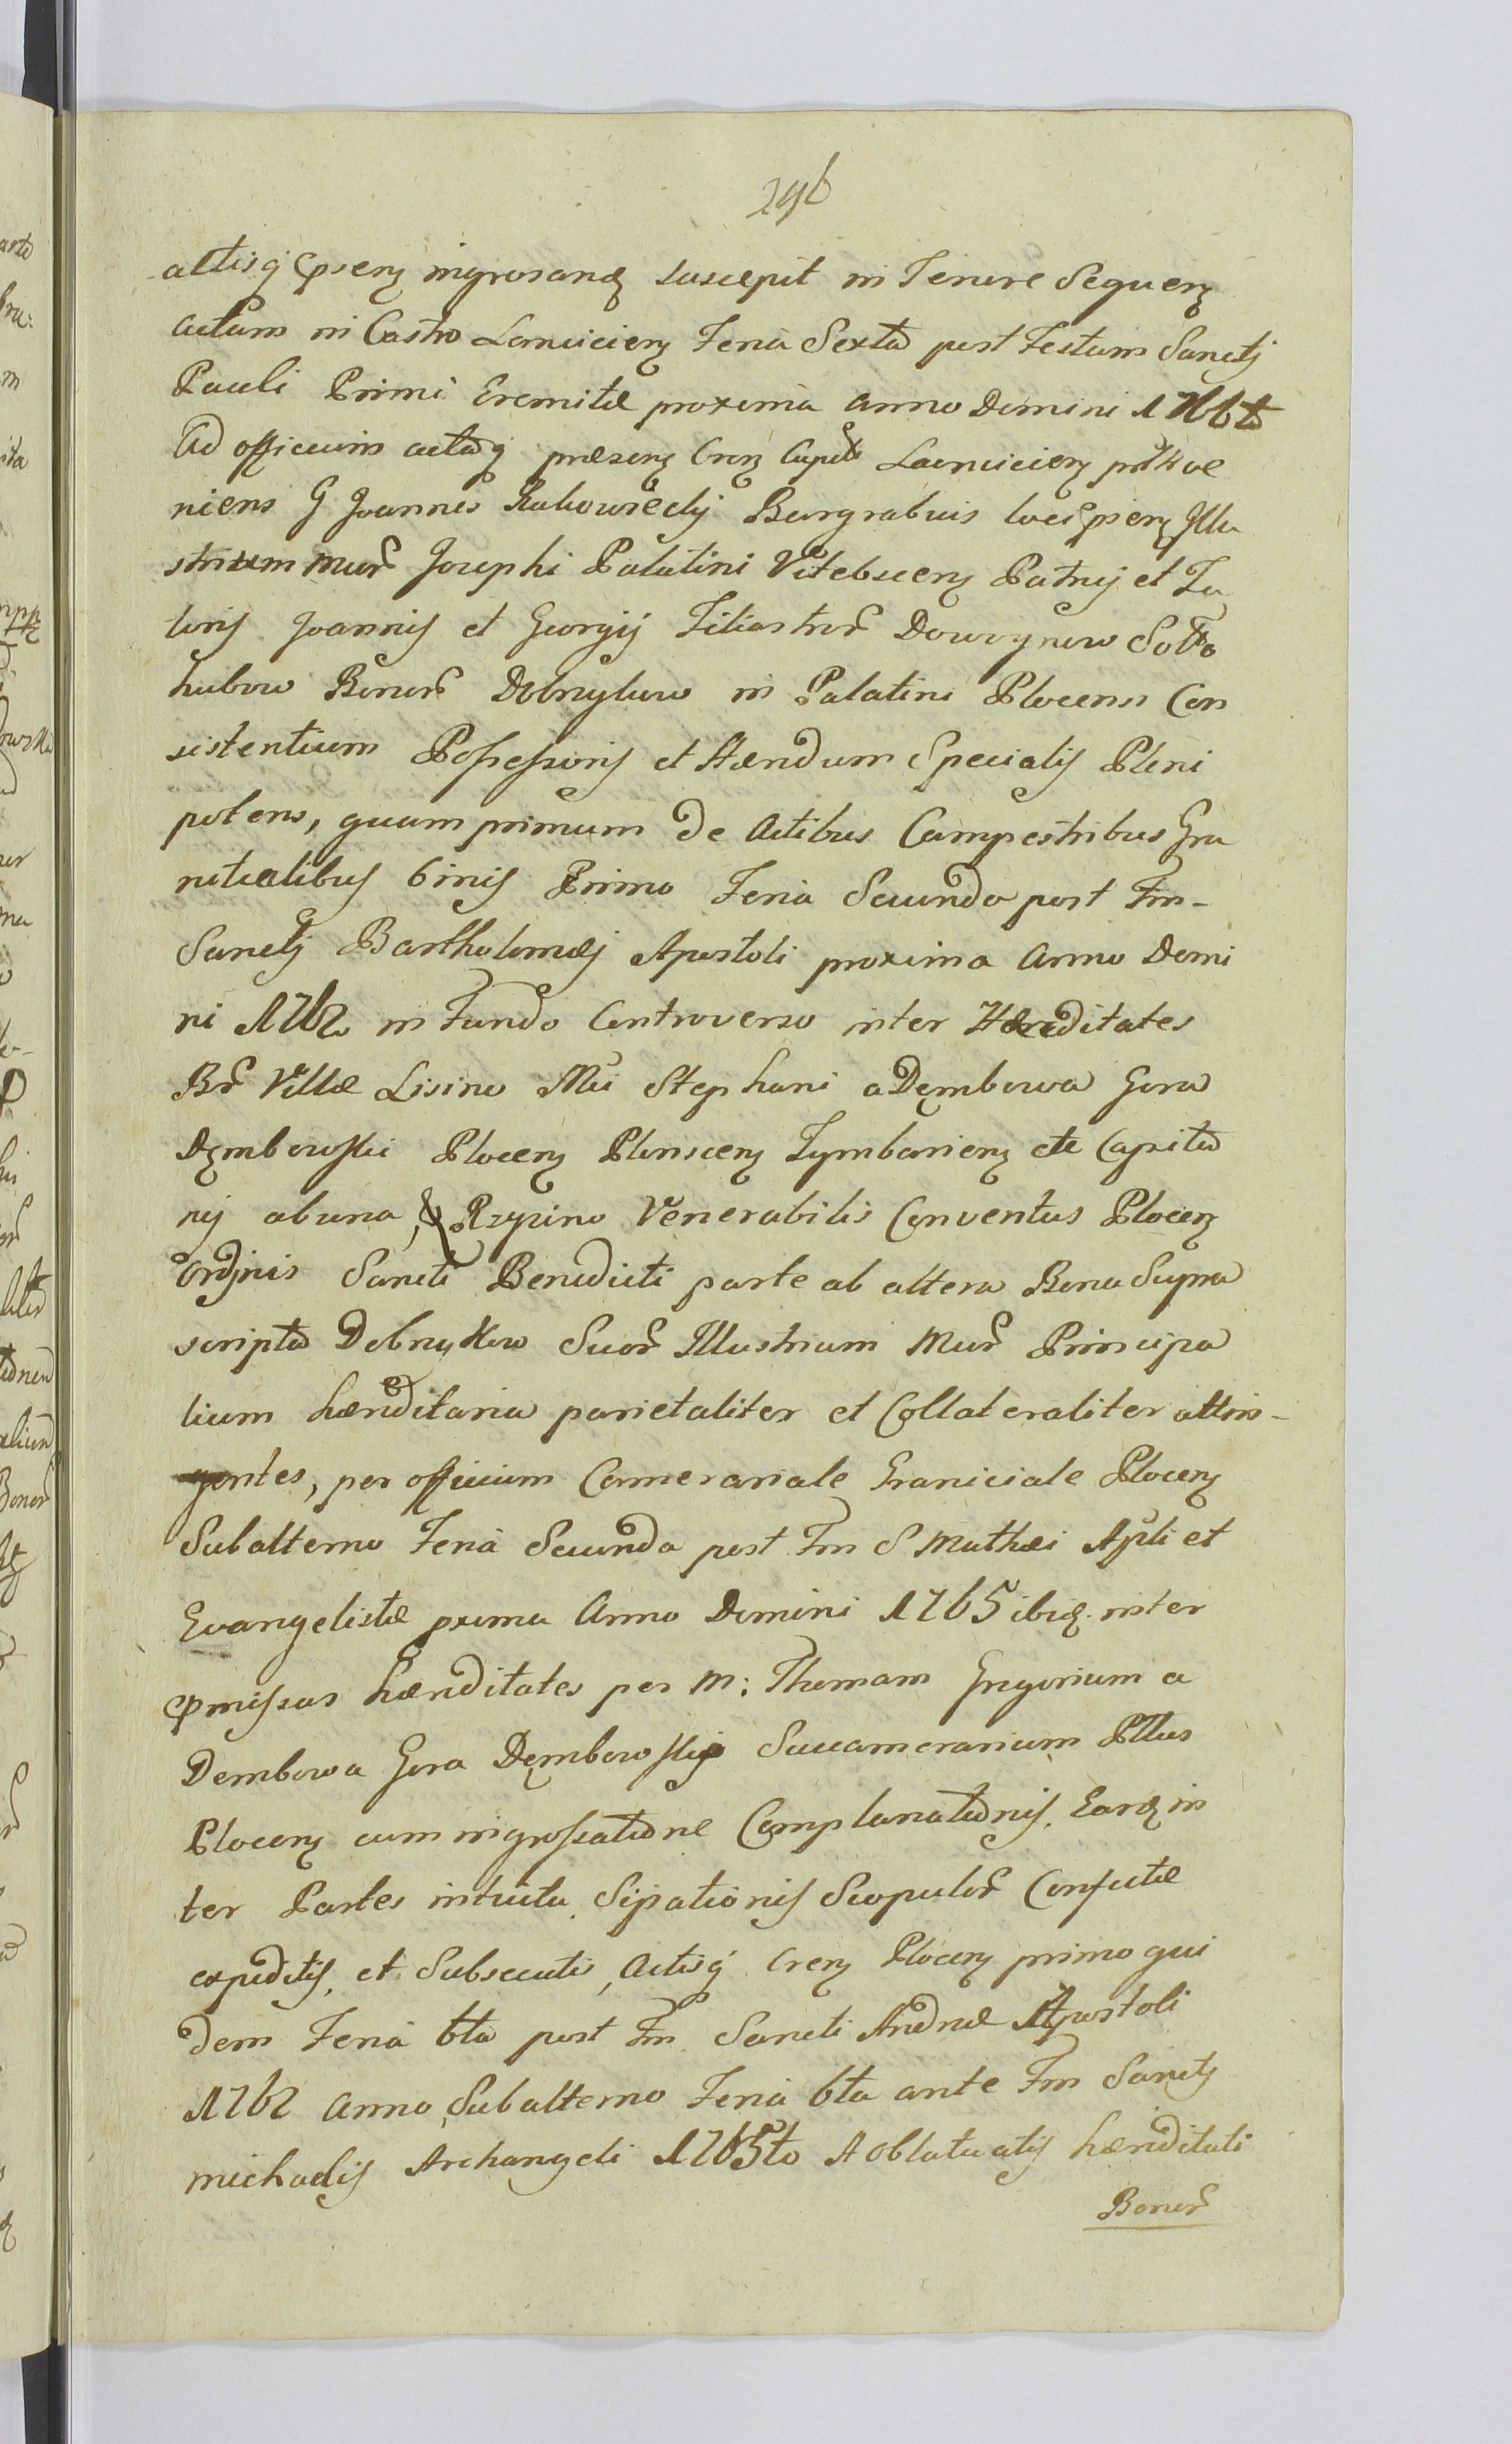 296
actisq̃ p̃senʒ ingrosandʒ suscepit in Tenore Sequenʒ
actum in Castro Lancicienʒ Feria Sexta post Festum Sanctj
Pauli Primi Eremitæ proxima anno Domini 1766to
Ad officium actaq̃ præsenʒ Crenʒ Capitt Lanciciensʒ prs̃tr ve
niens G Joannes Burgrabius loci p̃senʒ Illu
strium Mucor̃ Josephi Palatini Vitebscenʒ Patruj et Tu
toris Joannis et Georgij Filiastror̃ Dowoynow Sołło
hubow Bonor̃ Dobrzykow in Palatini Plocensi Con
sistentium Possessoris et Hæredum Specialis Pleni
potens, quam primum de Actibus Campestribus Gra
nitialibus binis Primo Feria Secunda post Fm-
Sanctj Bartholomæj Apostoli proxima Anno Domi
ni 1762 in Fundo Controverso inter Hæreditates
Br̃ Villæ Lisino Mci Stephani a Dęmbowa Gora
Dęmbowski Plocenʒ Plonscenʒ Tymbarienʒ ete Capita
nej ab una, & Rzyzino Venerabilis Conventus Plocenʒ
Ordinis Sancti Benedicti parte ab altera Bona Supra
scripta Dobrzykow Suor̃ Illustrium Mcor̃ Principa
lium hæreditaria parietaliter et Collateraliter attin-
gentes, per officium Camerariale Graniciale Plocenʒ
Subalterno Feria Secunda post Fm S Mathæi Apli et
Evangelistæ pxima Anno Domini 1765 ibidʒ inter
p̃missas hæreditates per M: Thomam Gregorium a
Dembowa Gora Dęmbowskij Succamerarium Pttus
Plocenʒ cum ingrossatione Complanationis Eardʒ in
ter Partes intuitu Sipationis Scopulor̃ Confectæ
expeditis, et Subsecutis, Actisq̃ Crenʒ Plocenʒ primo qui
dem Feria 6ta post Fm Sancti Andreæ Apostoli
1762 Anno, Subalterno Feria 6ta ante Fm Sanctj
Michaelis Archangeli 1765to A oblatuatis hæreditati
Bonor̃